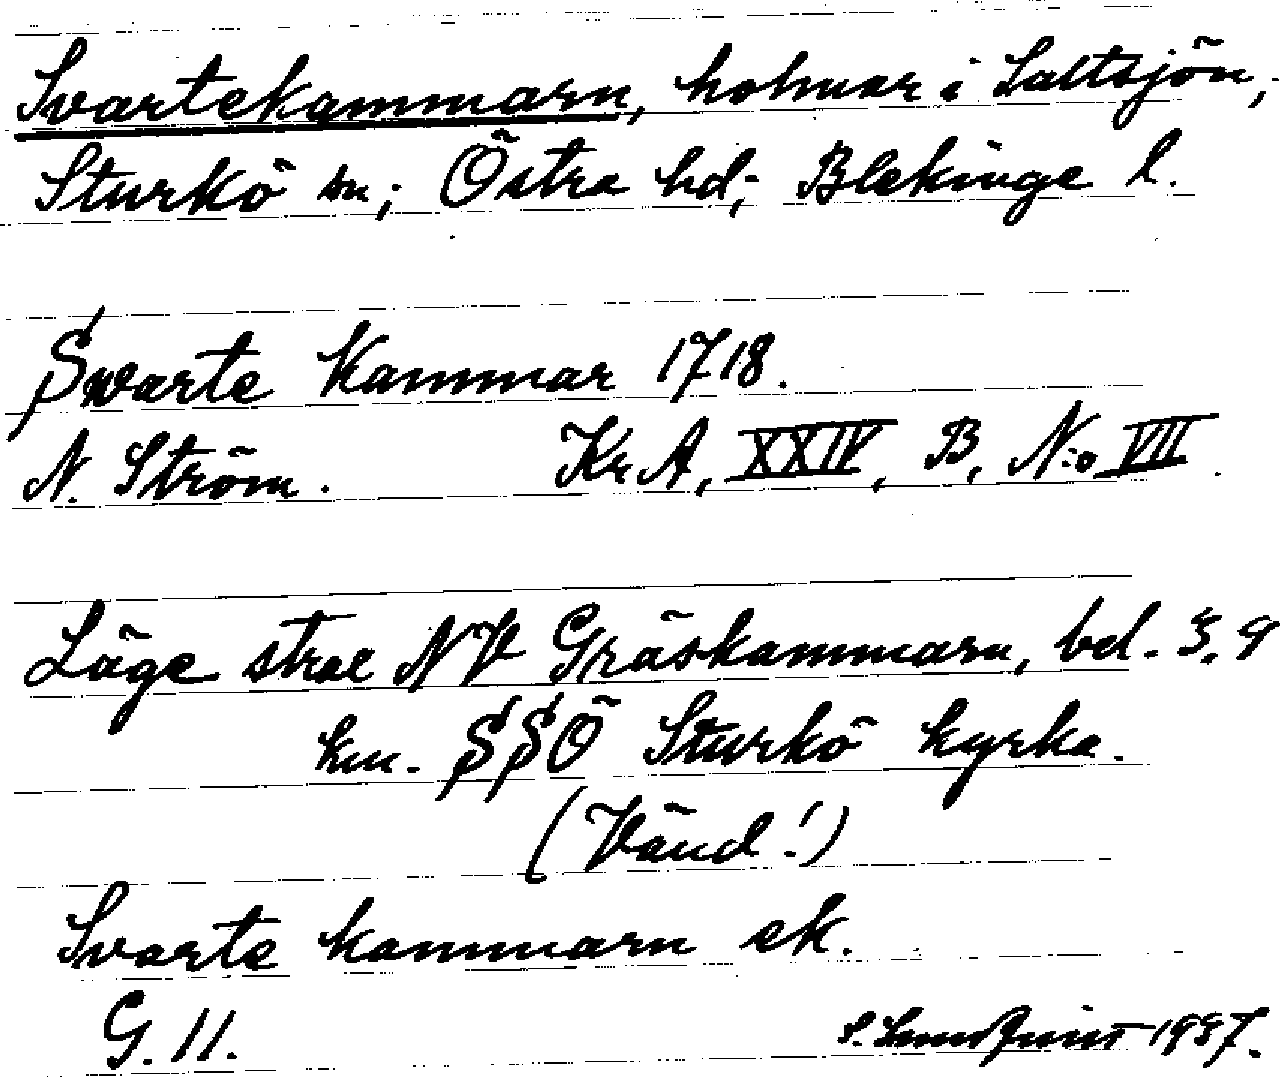 Svartekammarn, holmar i Saltsjön,
Sturkö sn; Östra hd; Blekinge l.
Swarte Kammar 1718.
N. Ström. Kr. A, XXIV, B, N:o VII.
Läge strax NV Gräskammarn, bel. 3.9
km. SSÖ Sturkö kyrka.
(Vänd!)
Svarte kammarn ek.
G. 11.
S. Lundquist 1937.